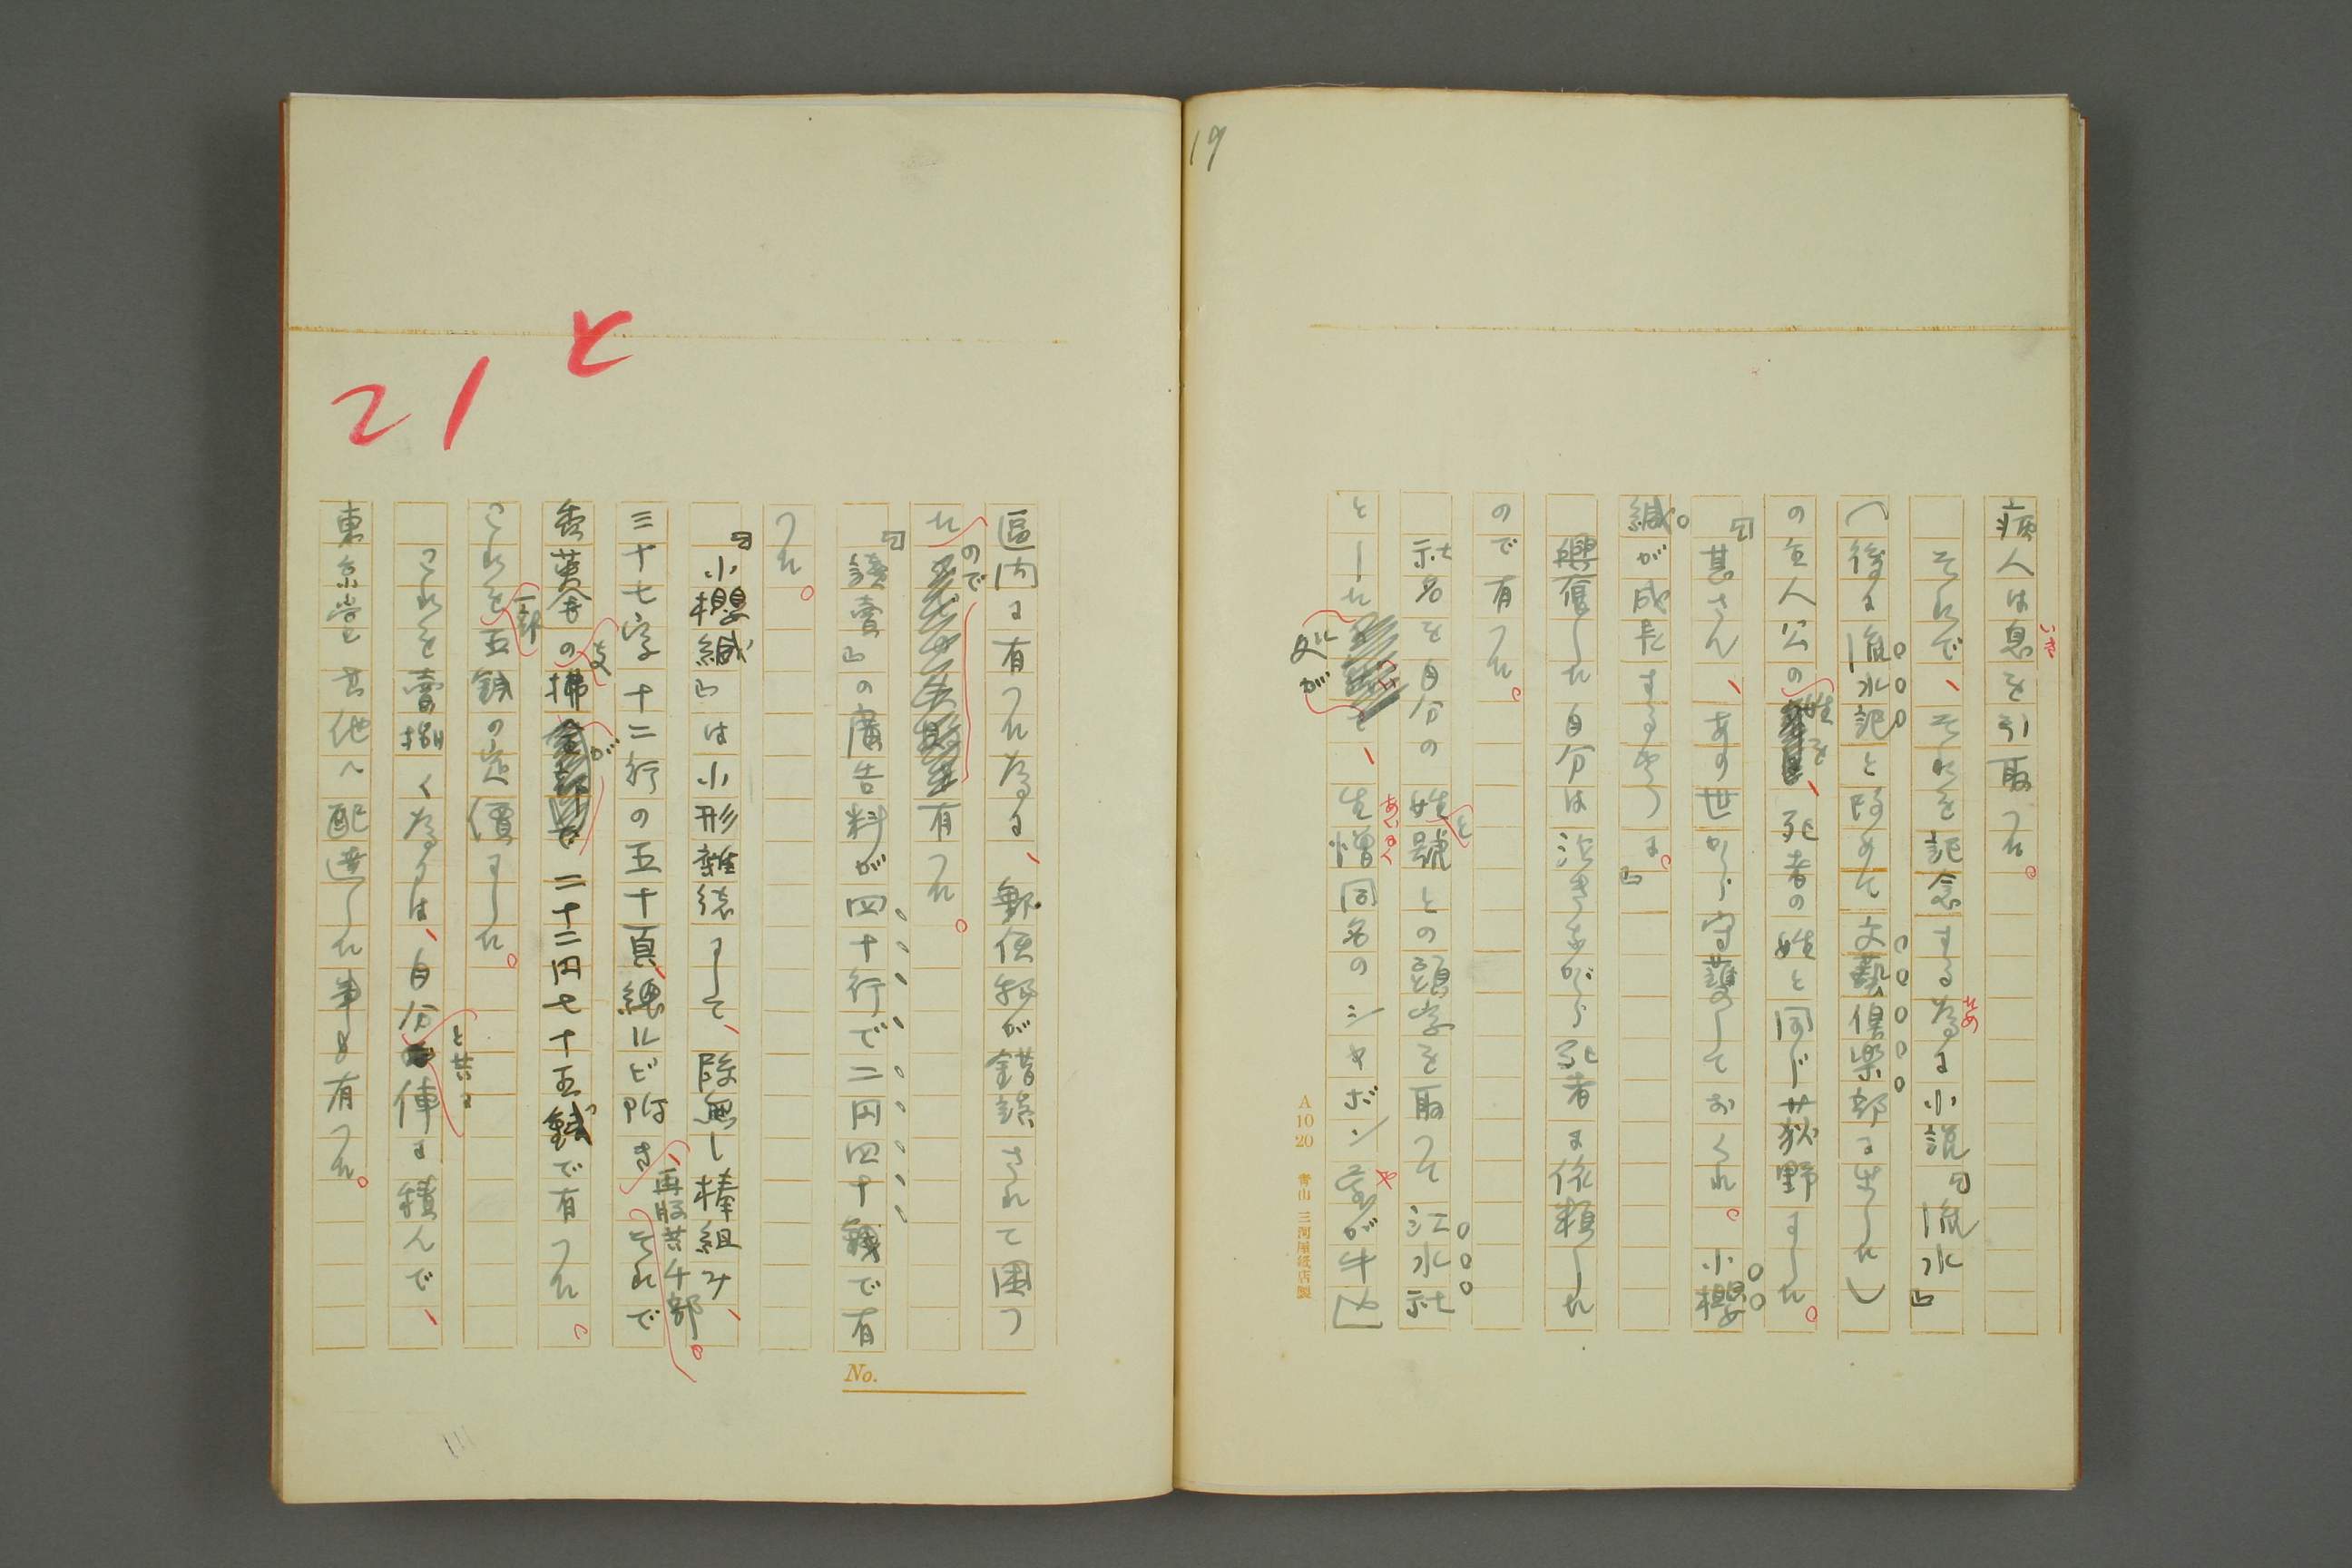 19
病人は息を引取つた。
いき
それで、それを記念する為に小説『流水』
ため
(後に流水記と改めて文藝倶楽部に出した)
の主人公の姓を、死者の姓と同じ荻野にした。
『甚さん、あの世から守護しておくれ。小櫻
縅が成功するやうに。』
興奮した自分は泣きながら死者に依頼した
ので有つた。
社名を自分の姓と號との頭字を取つて江水社
とした處が、生憎同名のシャボン屋が牛込
あいにく
や
A 10 20 青山 三河屋紙店製
と
21
區内に有つた為に、郵便物が錯誤されて困つ
たので有つた。
『讀賣』の廣告料が四十行で二円四十銭で有
つた。
『小櫻縅』は小形雜誌にして、段無し棒組み、
三十七字十二行の五十頁、總ルビ附き、再版共千部。それで
秀英舎の支拂が二十二円七十五銭で有つた。
これを一部五銭の定價にした。
これを賣捌く為には、自分と共に俥に積んで、
東京堂其他へ配達した事も有つた。
No.